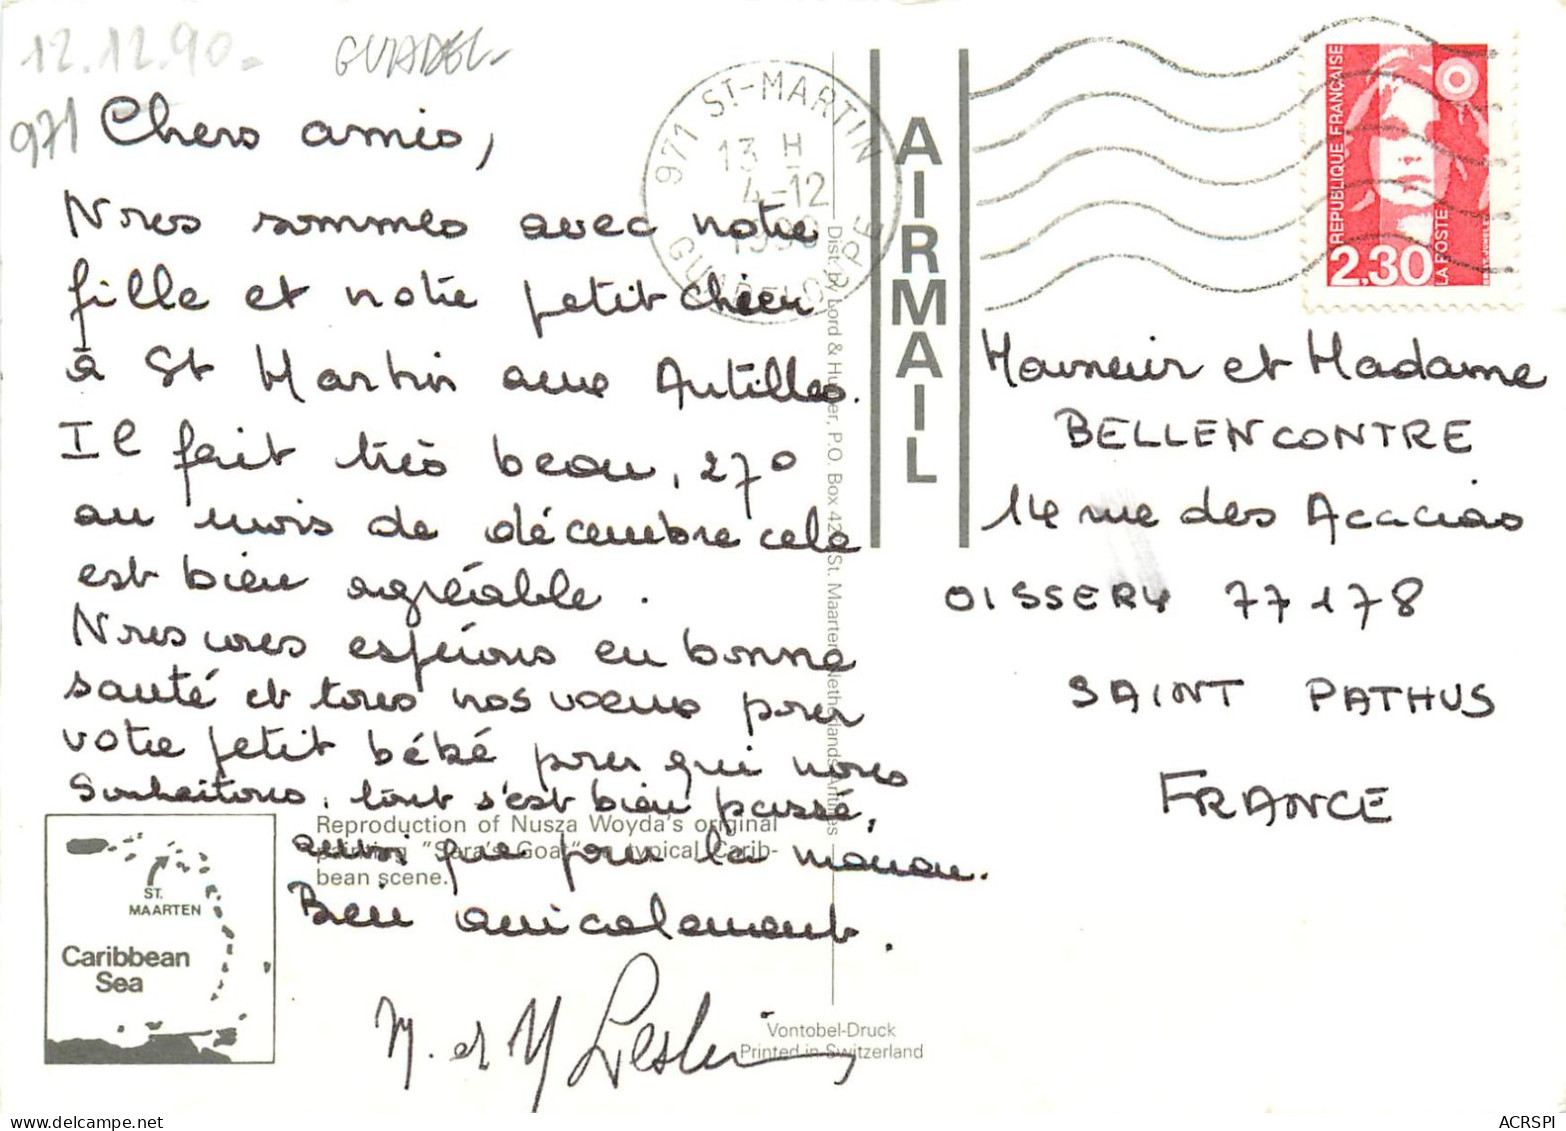 12.12.90
GUADEL
971
Chers amis,
Nous sommes avec notre
fille et notre petit chien
à St Martin aux Antilles.
Il fait très beau, 27°
au mois de décembre cela
est bien agréable.
Nous vous espérons en bonne
santé et tous nos vœux pour
votre petit bébé pour qui nous
souhaitons, tout s'est bien passé,
ainsi que pour la maman.
Bien amicalement.
M. et Y
971 ST-MARTIN
13 H
4-12
1990
GUADELOUPE
AIRMAIL
REPUBLIQUE FRANÇAISE
2,30
LA POSTE
Monsieur et Madame
BELLENCONTRE
14 rue des Acacias
OISSERY 77178
SAINT PATHUS
FRANCE
Dist. by Lord & Hunter, P.O. Box 42, St. Maarten Netherlands Antilles
Reproduction of Nusza Woyda's original
painting "Sara's Goat" a typical Carib-
bean scene.
ST.
MAARTEN
Caribbean
Sea
Vontobel-Druck
Printed in Switzerland
ACRSPI